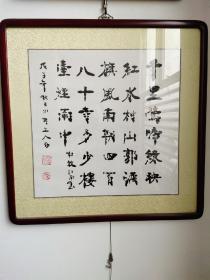 千里鶯啼綠映
紅水村山郭酒
旗風南朝四百
八十寺多少樓
臺煙雨中 杜牧江南春
戊子年秋